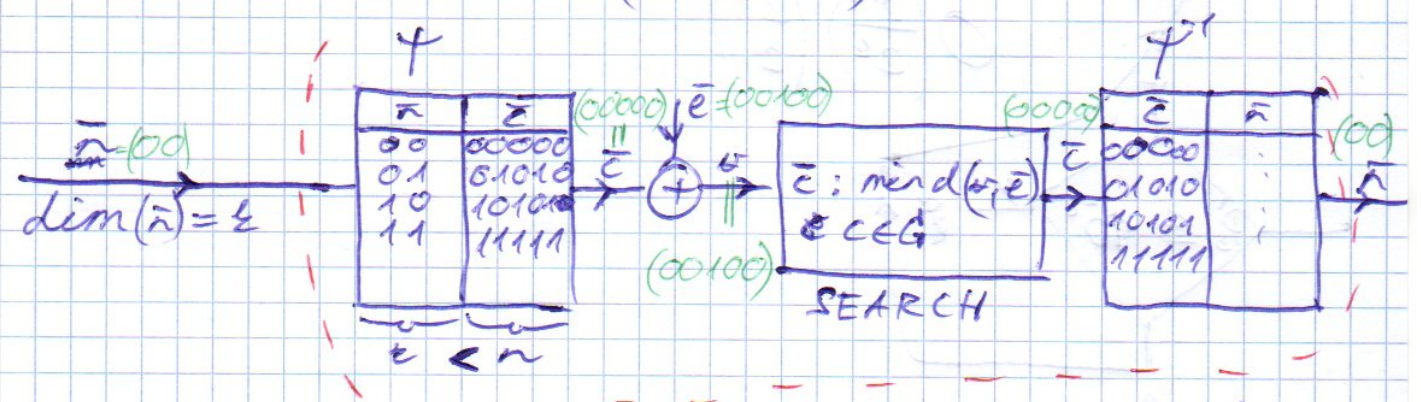 ψ
n̄ c̄
00 00000
01 01010
10 10101
11 11111
n̄=(00)
dim(n̄)=k
k < n
(00000)
=
c̄
ē=(00100)
+
v̄
(00100)
c̄: min d(v̄,c̄)
c̄ ∈ G
SEARCH
(00000)
c̄
ψ⁻¹
c̄ n̄
00000
01010
10101
11111
(00)
n̄